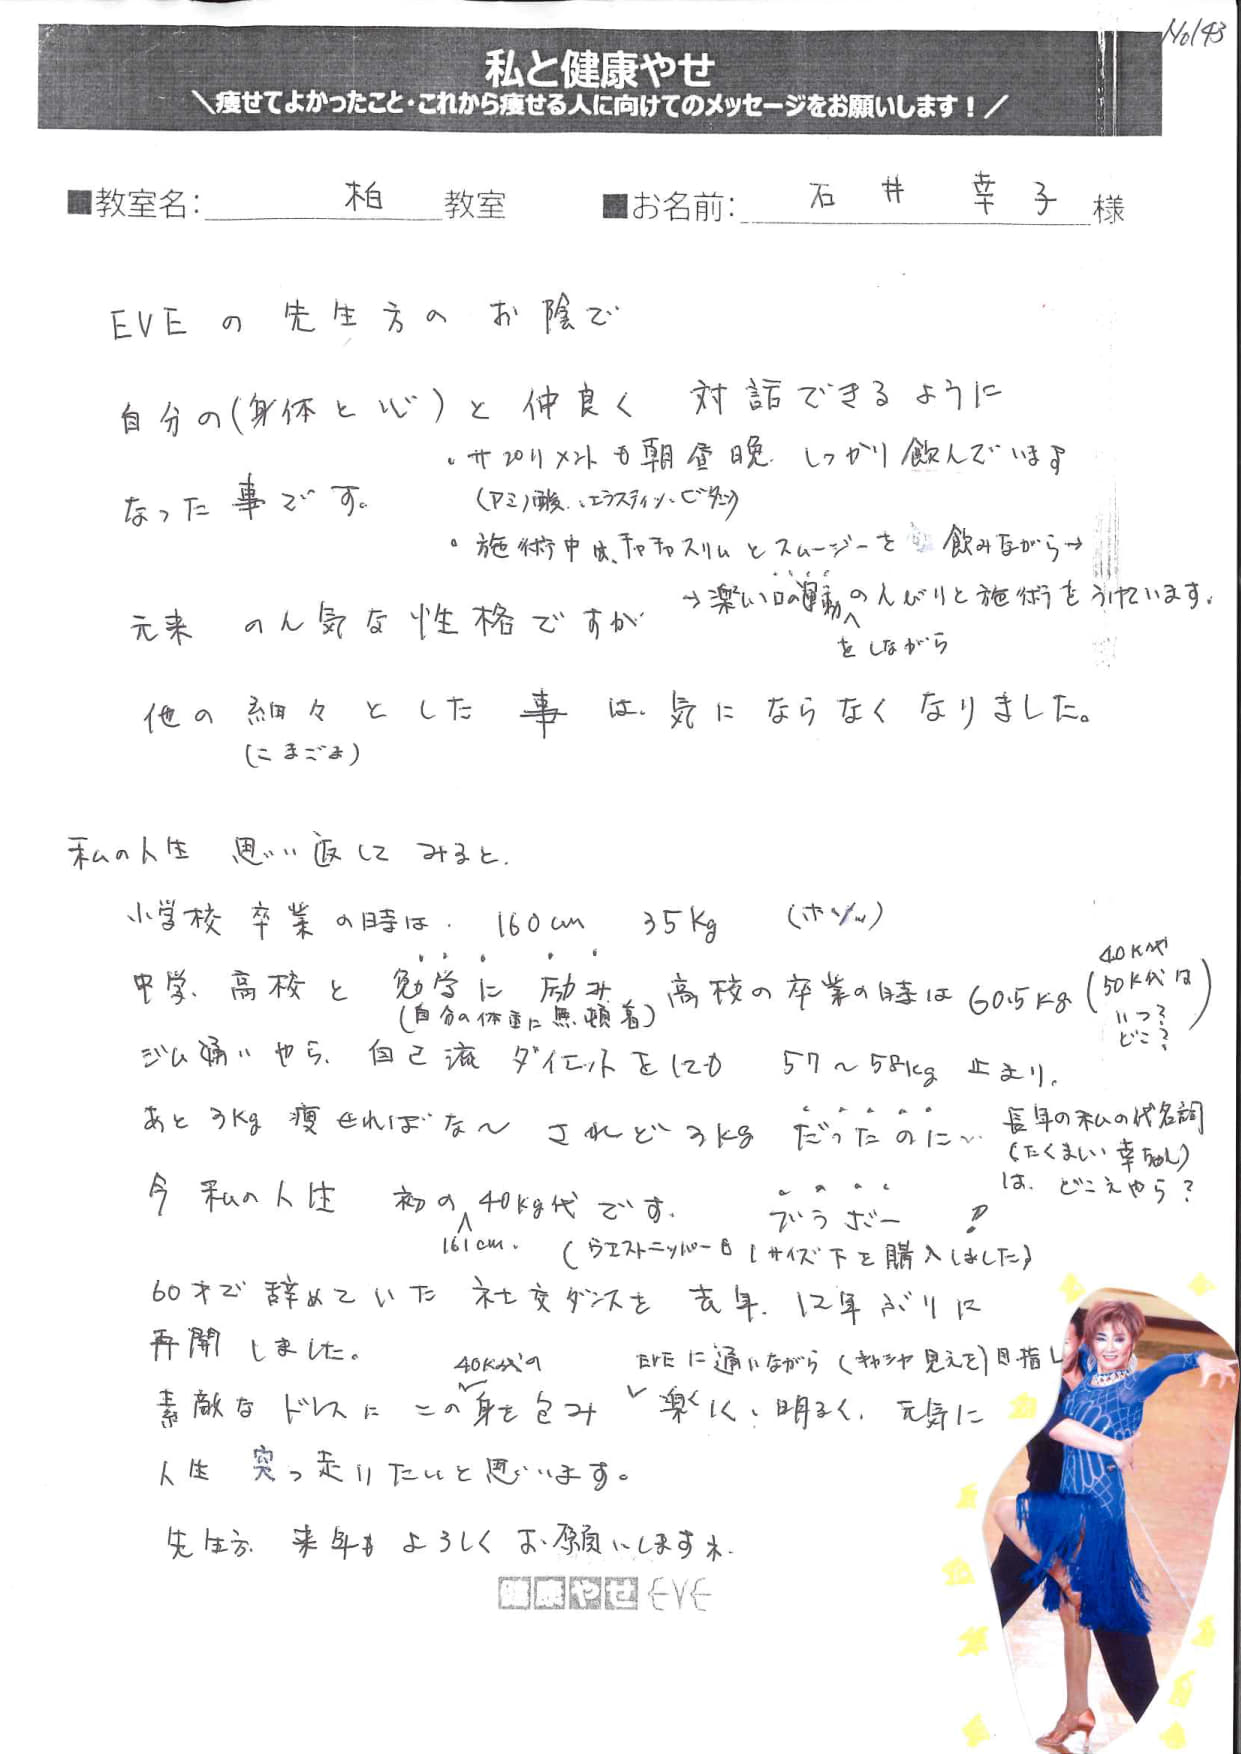 No143
私と健康やせ
＼痩せてよかったこと・これから痩せる人に向けてのメッセージをお願いします！／
■教室名： 柏 教室 ■お名前： 石井 幸子 様
EVEの先生方のお陰で
自分の(身体と心)と仲良く 対話できるように
・サプリメントも朝昼晩 しっかり飲んでいます
なった事です。 (アミノ酸、エラスチン、ビタミン)
・施術中は、チャチャスリムとスムージーを飲みながら→
→楽しい口の運動をしながらのんびりと施術をうけています。
元来 のん気な性格ですが
他の細々とした事は、気にならなくなりました。
(こまごま)
私の人生 思い返してみると、
小学校卒業の時は、160cm 35kg (ホソッ)
中学、高校と勉学に励み 高校の卒業の時は60.5kg (40K代 50K代は いつ? どこ?)
(自分の体重に無頓着)
ジム通いやら、自己流ダイエットをしても 57〜58kg 止まり、
あと3kg 痩せればな〜 されど3kg だったのに〜 長年の私の代名詞
(たくましい幸ちゃん)
は、どこえやら?
今 私の人生 初の 161cm. 40kg代です。 ブラボー!
(ウエストニッパーも1サイズ下を購入しました)
60才で辞めていた社交ダンスを 去年、12年ぶりに
再開しました。
素敵なドレスに この40K代の身を包み EVEに通いながら(キャシャ見えを)目指し 楽しく、明るく、元気に
人生 突っ走りたいと思います。
先生方 来年もよろしくお願いしますネ.
健康やせEVE